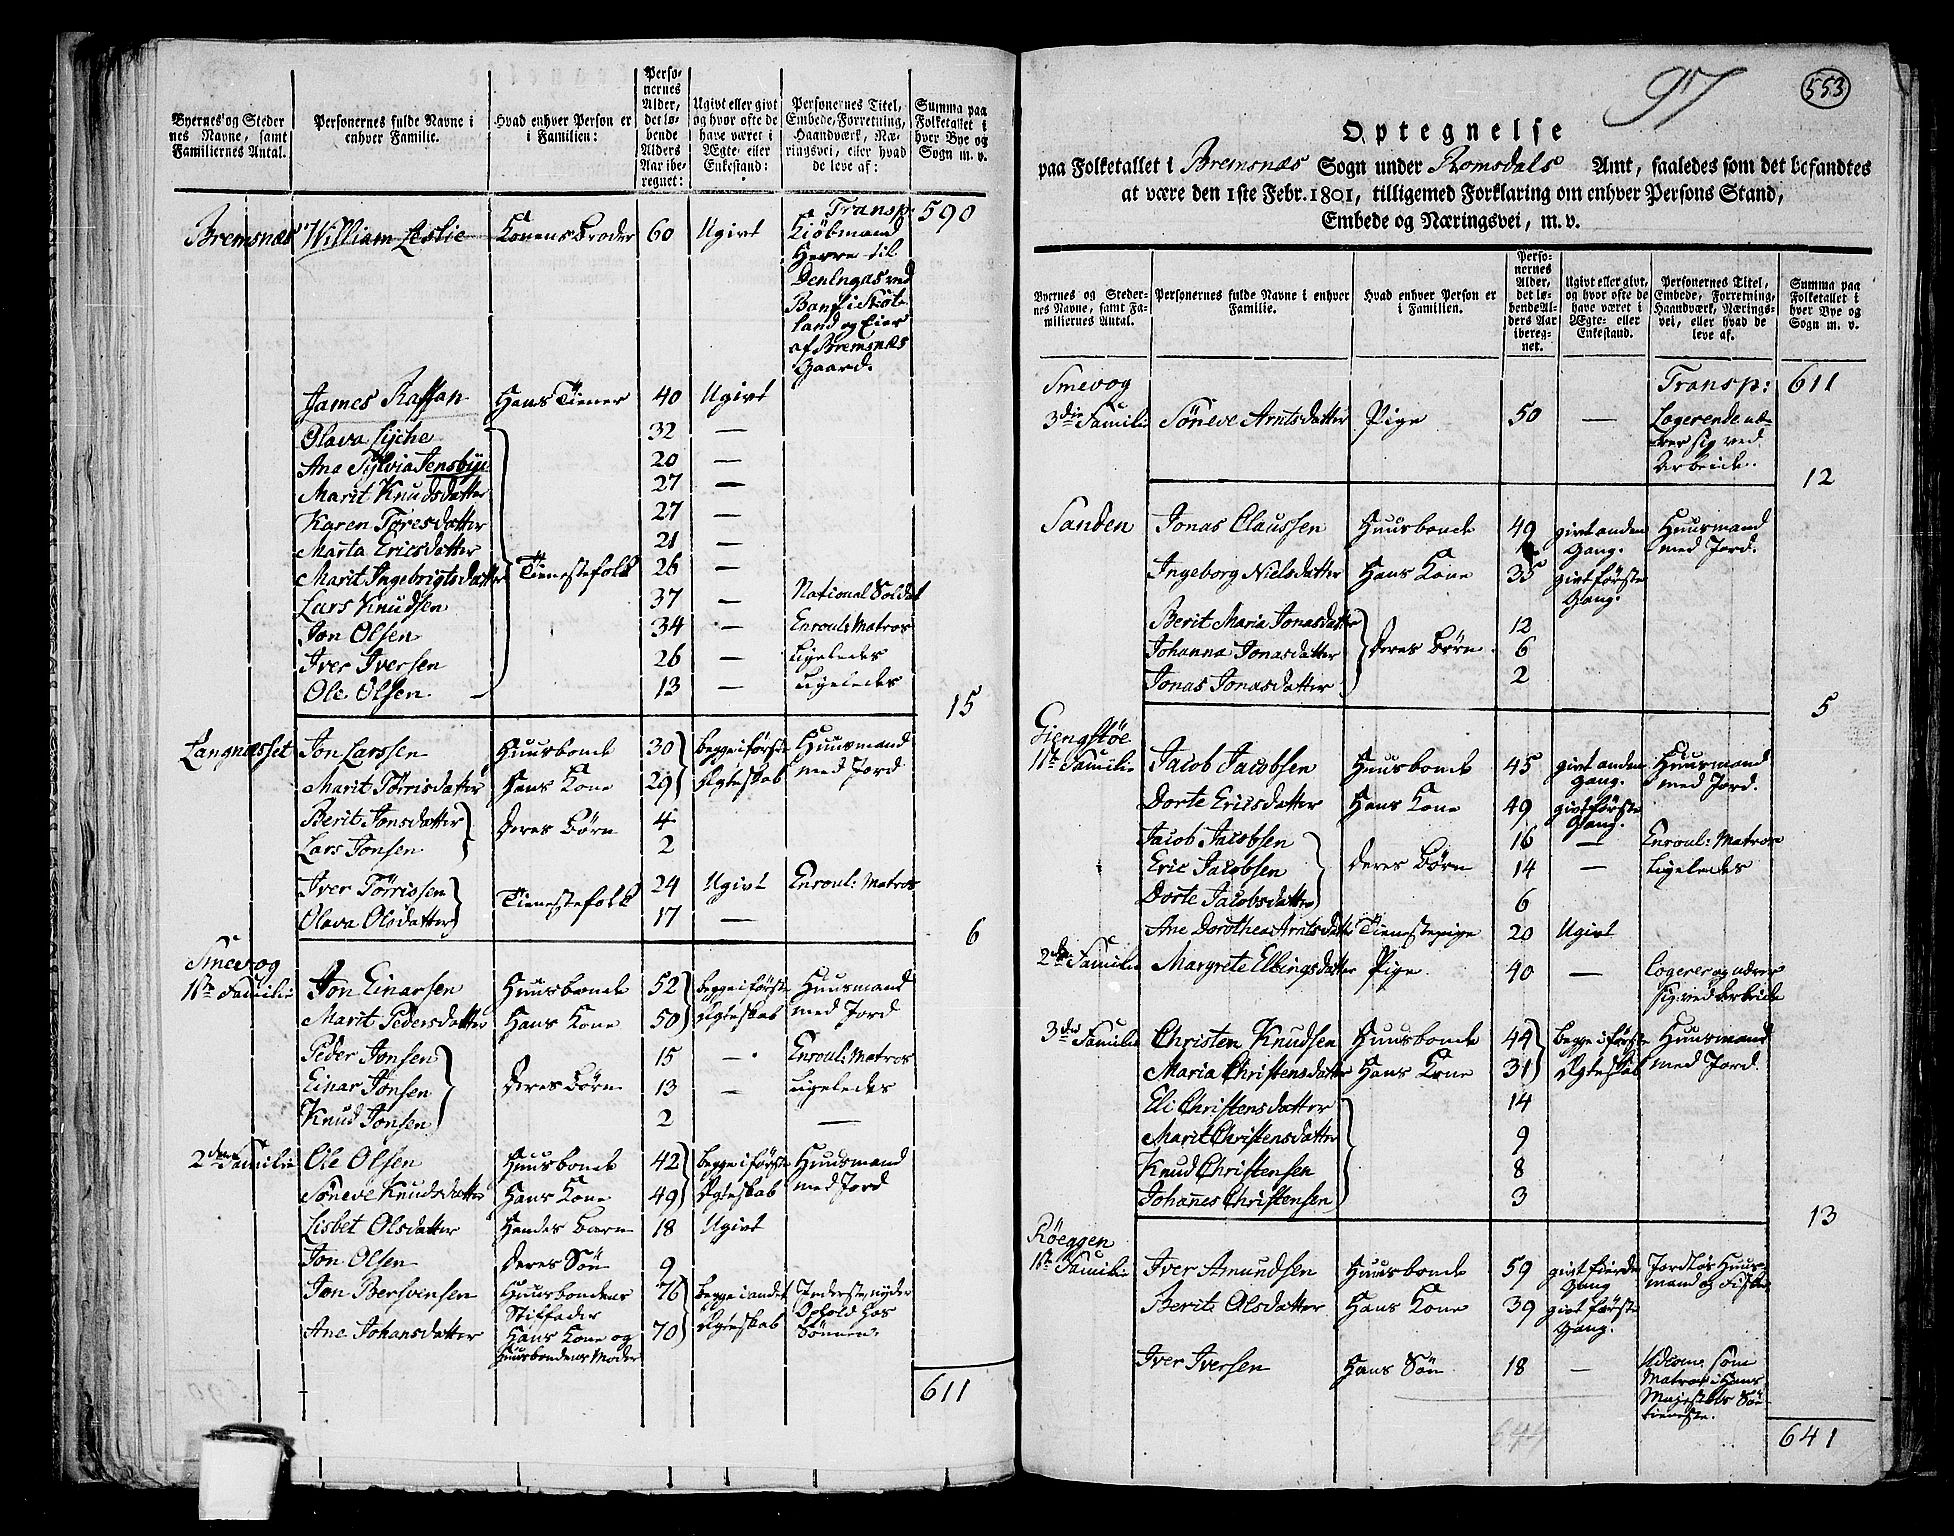 Byernes og Steder nes Navne, samt Familiernes Antal.
Personernes fulde Navne i enhver Familie.
Hvad enhver Person er i Familien:
Personernes Alder, det løbende Alders Aar iberegnet:
Ugivt eller givt og hvor ofte de have været i Ægte- eller Enkestand:
Personernes Titel, Embede, Forretning, Haandværk, Næringsvei, eller hvad de leve af:
Summa paa Folketallet i hver Bye og Sogn m. v.
Transp: 590
Bremsnæs William Leslie Konens Broder 60 Ugivt Kiøbmand
Herre til
Den Ingas ved
Banf i Skot-
land og Eier
af Bremsnæs
Gaard.
James Raffan Hans Tiener 40 Ugivt
Olava Lyche 32 —
Ana Sylvia Jensbye 20 —
Marit Knudsdatter 27 —
Karen Toresdatter 27 —
Marta Ericsdatter 21 —
Marit Ingebrigtsdatter Tienestefolk 26 —
Lars Knudsen 37 — National Soldat
Jon Olsen 34 — Enroul: Matros
Iver Iversen 26 — Ligeledes
Ole Olsen 13 — Ligeledes
15
Langnæsset Jon Larssen Huusbonde 30 begge i første Huusmand
Marit Törrisdatter Hans Kone 29 Ægteskab med Jord
Berit Jonsdatter Deres Børn 4
Lars Jonsen 2
Iver Törrissen Tienestefolk 24 Ugivt Enroul: Matros
Olava Olsdatter 17 —
6
Smevog
1ste Familie Jon Einarsen Huusbonde 52 begge i første Huusmand
Marit Pedersdatter Hans Kone 50 Ægteskab med Jord
Peder Jonsen 15 — Enroul: Matros
Einar Jonsen Deres Børn 13 — Ligeledes
Knud Jonsen 2 —
2den Familie Ole Olsen Huusbonde 42 begge i første Huusmand
Söneve Knudsdatter Hans Kone 49 Ægteskab med Jord
Lisbet Olsdatter Hendes Barn 18 Ugivt
Jon Olsen Deres Søn 9
Jon Bersvinsen Huusbondens 76 begge i andet Inderste, nyder
Stiffader Ophold hos
Ane Johansdatter Hans Kone og 70 Ægteskab Sønnen.
Huusbondens Moder
611
97
553
Optegnelse
paa Folketallet i Bremsnæs Sogn under Romsdals Amt, saaledes som det befandtes
at være den 1ste Febr. 1801, tilligemed Forklaring om enhver Persons Stand,
Embede og Næringsvei, m. v.
Byernes og Stedernes Navne, samt Familiernes Antal.
Personernes fulde Navne i enhver Familie.
Hvad enhver Person er i Familien.
Personernes Alder, det løbende Alders Aar iberegnet.
Ugivt eller givt, og hvor ofte de have været i Ægte- eller Enkestand.
Personernes Titel, Embede, Forretning, Haandværk, Næringsvei, eller hvad de leve af.
Summa paa Folketallet i hver Bye og Sogn m. v.
Smevog Transp: 611
3die Familie Söneve Arntsdatter Pige 50 — Logerende næ-
rer sig ved
Arbeide.
12
Sanden Jonas Claussen Huusbonde 49 givt anden Huusmand
Gang. med Jord.
Ingeborg Nielsdatter Hans Kone 35 givt første
Gang.
Berit Maria Jonasdatter 12
Johanna Jonasdatter Deres Børn 6
Jonas Jonasdatter 2
5
Giengstøe
1ste Familie Jacob Jacobsen Huusbonde 45 givt anden Huusmand
Gang. med Jord.
Dorte Ericsdatter Hans Kone 49 givt første
Gang.
Jacob Jacobsen 16 — Enroul: Matros
Eric Jacobsen Deres Børn 14 — Ligeledes
Dorte Jacobsdatter 6
Ane Dorothea Arntsdatter Tienestepige 20 Ugivt
2den Familie Margrete Ellingsdatter Pige 40 — Logerer og nærer
sig ved Arbeide
3die Familie Christen Knudsen Huusbonde 44 begge i første Huusmand
Maria Christensdatter Hans Kone 31 Ægteskab med Jord
Eli Christensdatter 14
Marit Christensdatter 9
Knud Christensen 8
Johannes Christensen 3
13
Röeggen
1ste Familie Iver Amundsen Huusbonde 59 givt fierde Jordløs Huus-
Gang mand og Fisker
Berit Olsdatter Hans Kone 39 givt første
Gang.
Iver Iversen Hans Søn 18 — Udcom: som
Matros i Hans
Majestæts Søe
tieneste.
644
641